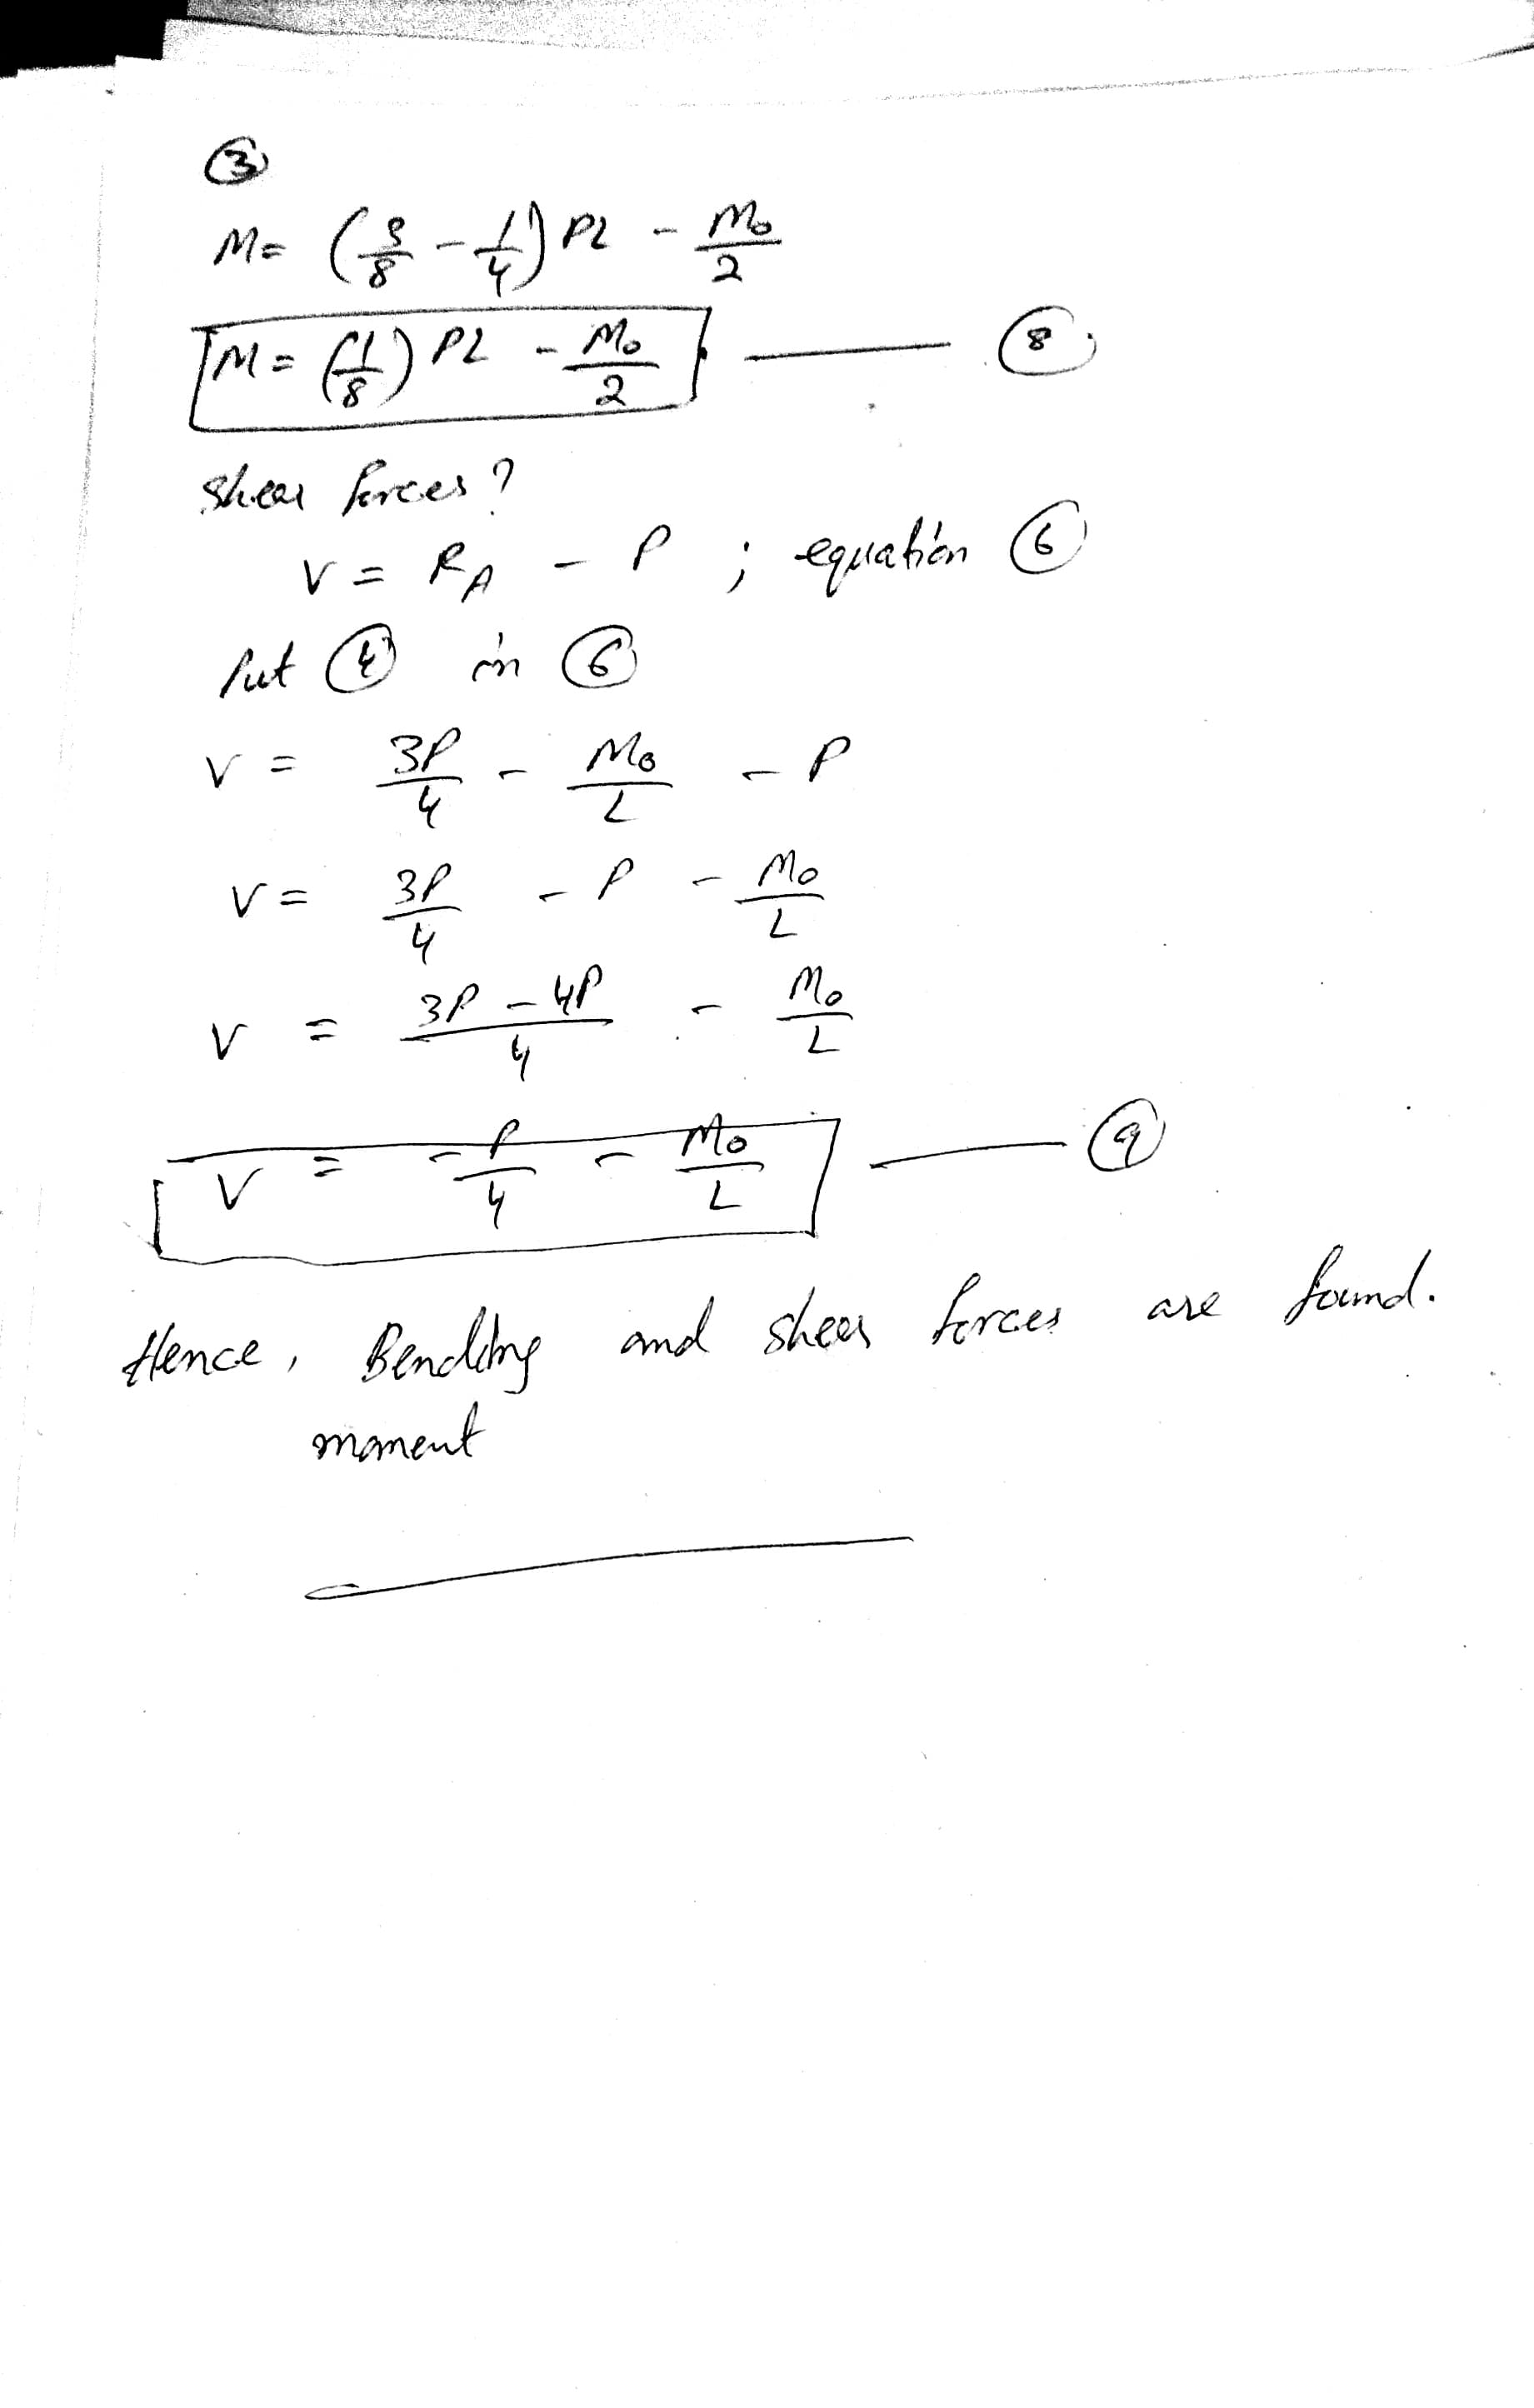 ③
M = (3/8 - 1/4) PL - Mo/2
M = (1/8) PL - Mo/2 —— ⑧
Shear forces?
V = RA - P ; equation ⑥
Put ④ in ⑥
V = 3P/4 - Mo/L - P
V = 3P/4 - P - Mo/L
V = (3P - 4P)/4 - Mo/L
V = -P/4 - Mo/L —— ⑨
Hence, Bending and shear forces are found.
moment